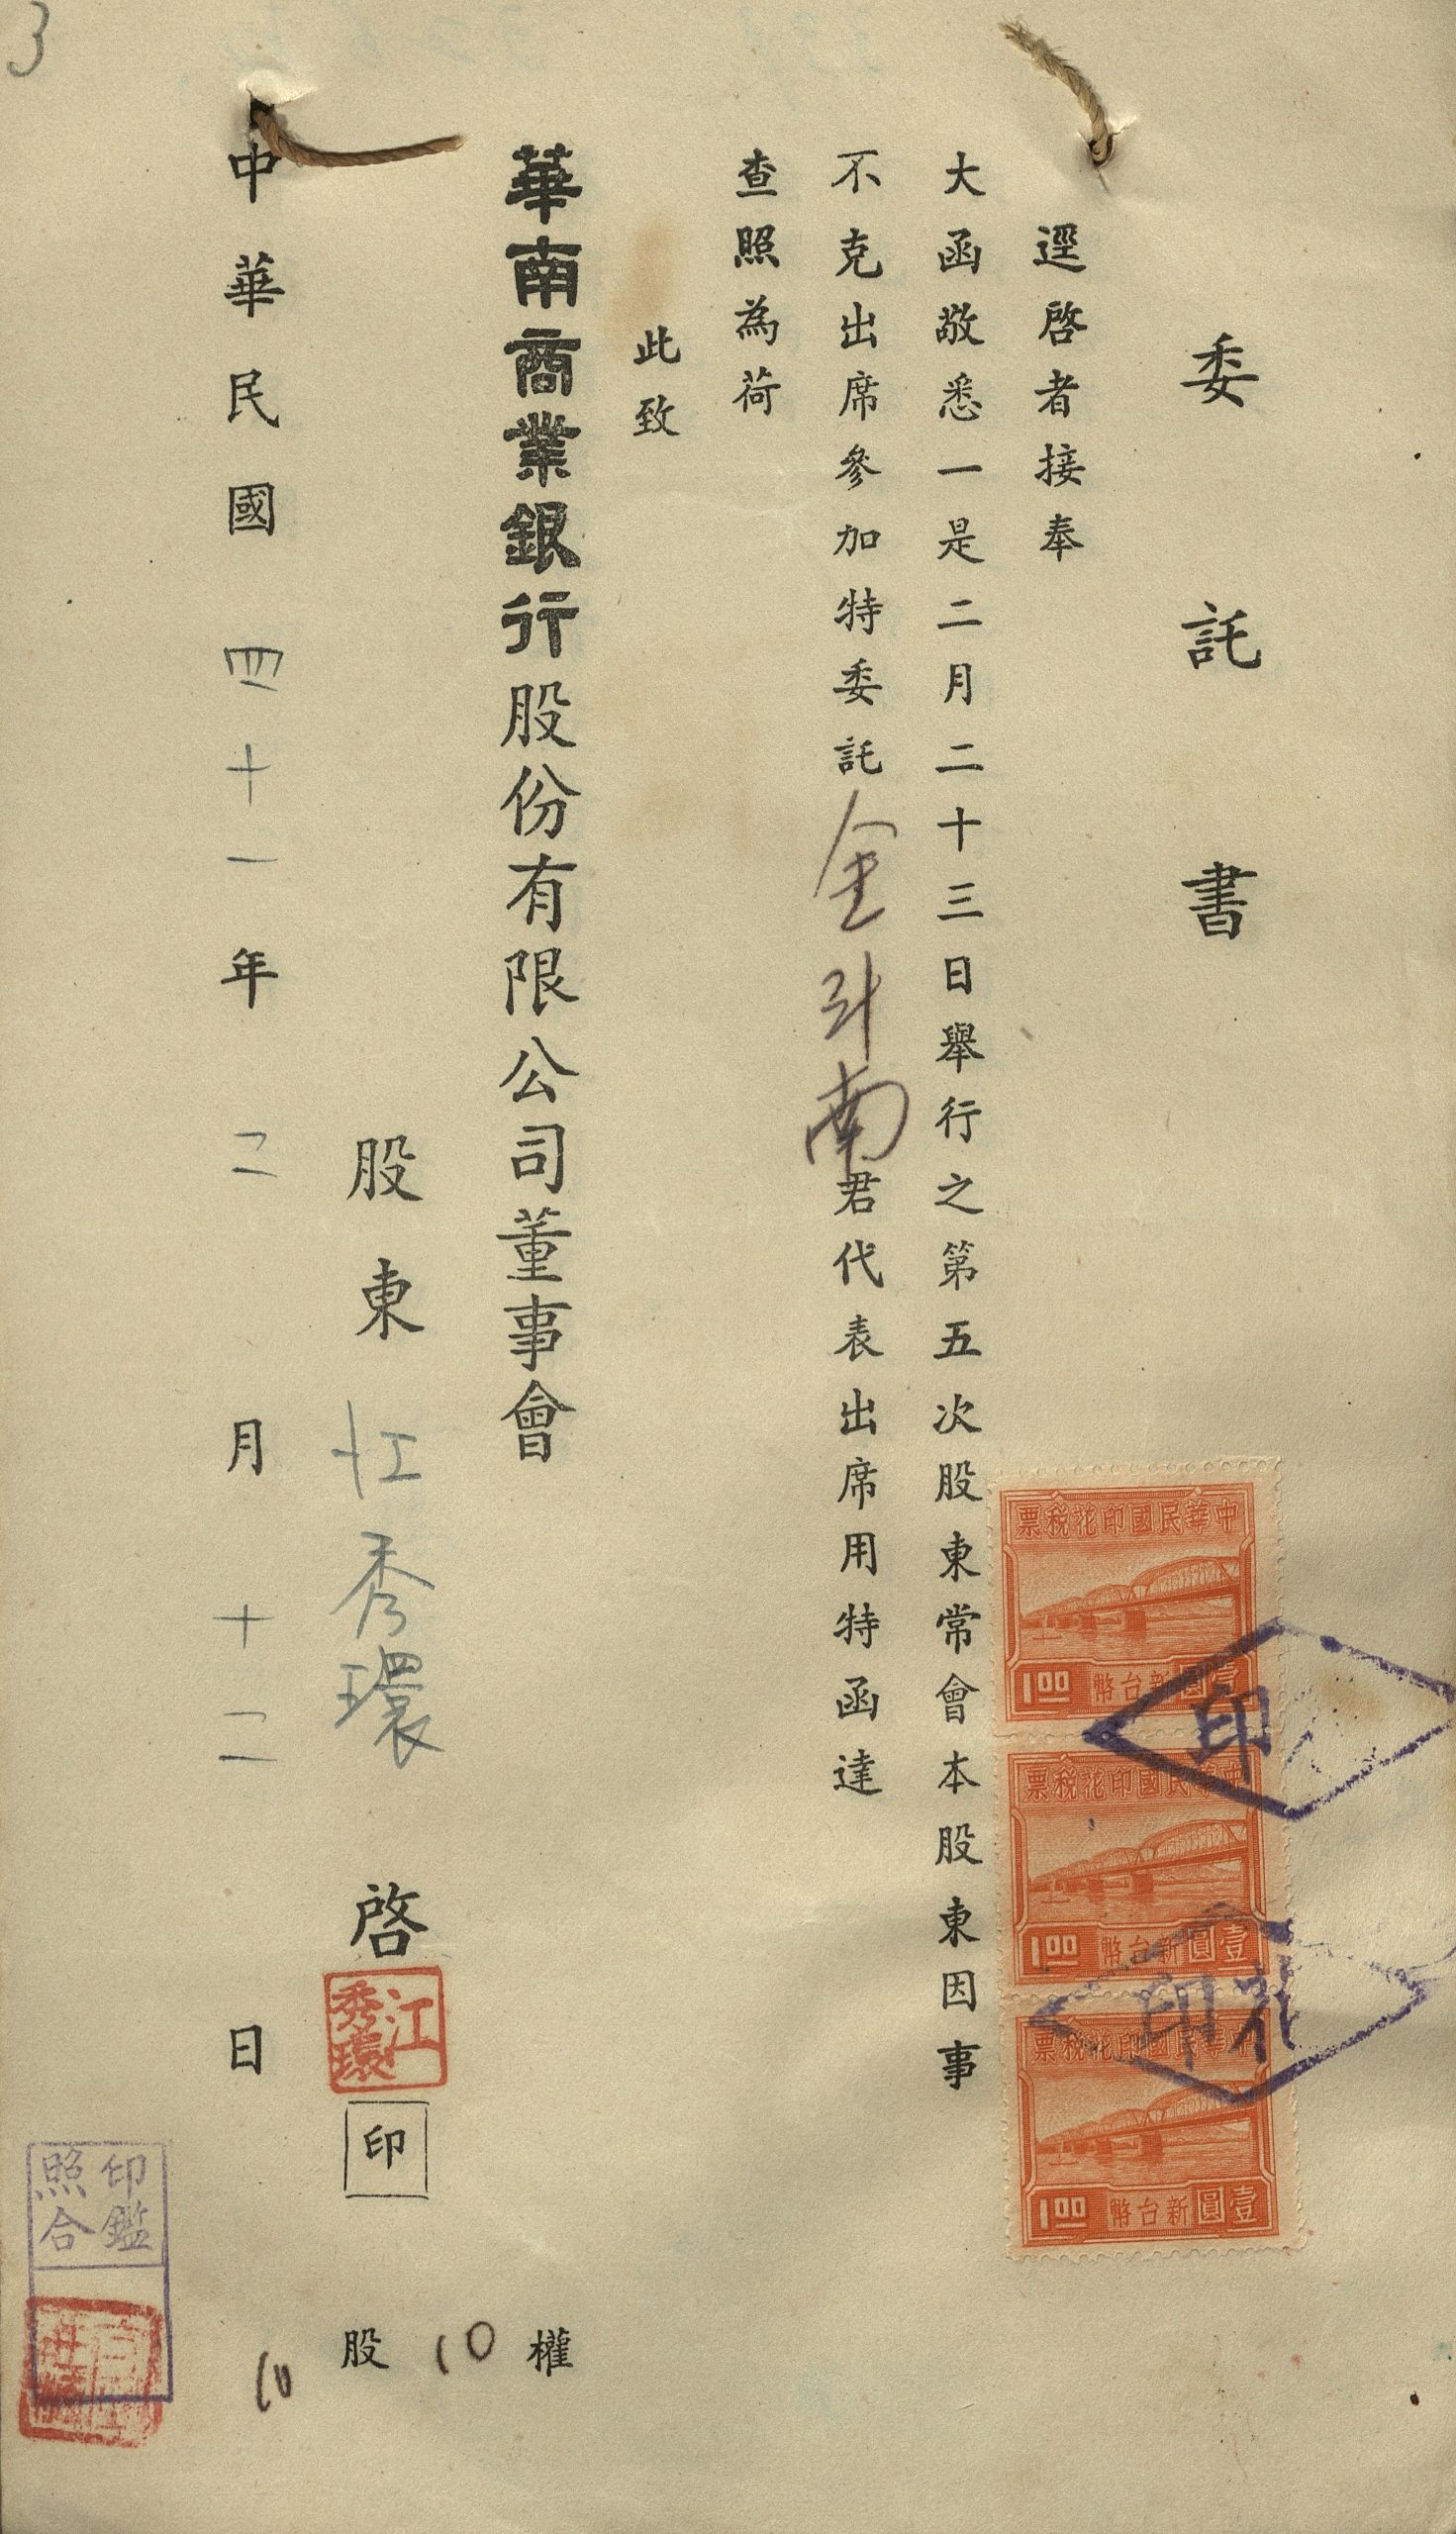 3
委託書
逕啓者接奉
大函敬悉一是二月二十三日舉行之第五次股東常會本股東因事
不克出席參加特委託金斗南君代表出席用特函達
查照為荷
此致
華南商業銀行股份有限公司董事會
股東江秀環啓
江秀環
印
權10
股10
中華民國四十一年二月十二日
印鑑
照合
中華民國印花稅票
壹圓新台幣
1.00
中華民國印花稅票
壹圓新台幣
1.00
中華民國印花稅票
壹圓新台幣
1.00
印
花印